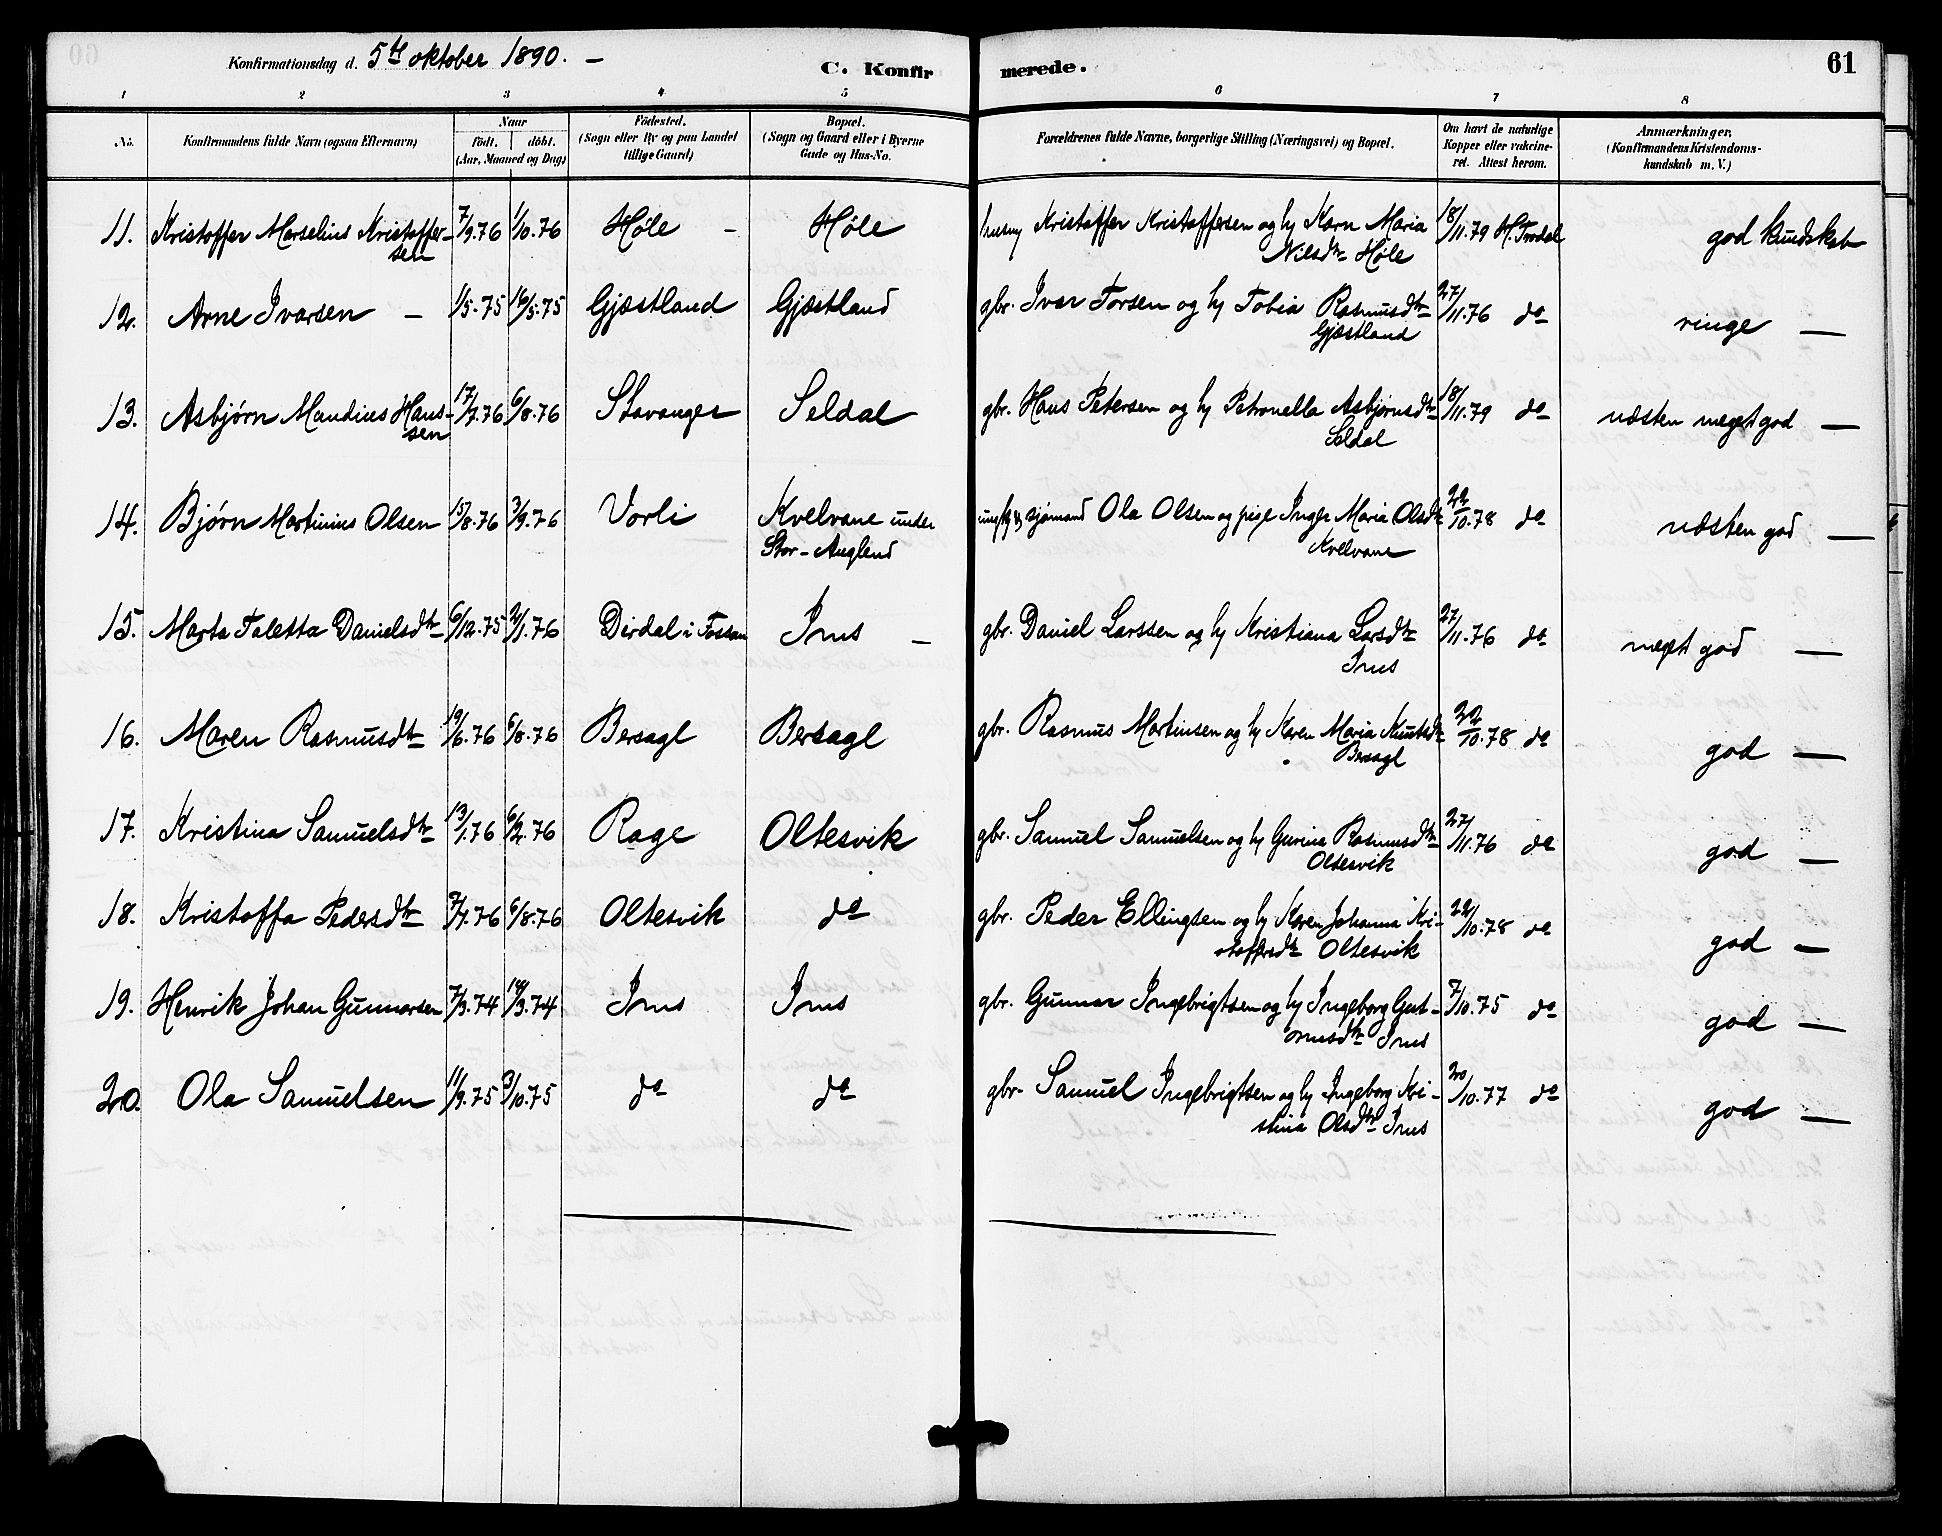 Konfirmationsdag d. 5te oktober 1890. –
C. Konfirmerede.
61
1 2 3 4 5 6 7 8
No.
Konfirmandens fulde Navn (ogsaa Efternavn)
Naar
født. døbt.
(Aar, Maaned og Dag)
Fødested.
(Sogn eller By og paa Landet
tillige Gaard)
Bopæl.
(Sogn og Gaard eller i Byerne
Gade og Hus-No.
Forældrenes fulde Navne, borgerlige Stilling (Næringsvei) og Bopæl.
Om havt de naturlige
Kopper eller vakcine-
ret. Attest herom.
Anmærkninger.
(Konfirmandens Kristendoms-
kundskab m. V.)
11. Kristoffer Marselius Kristoffer- 7/9.76 1/10.76 Høle – Høle husm Kristoffer Kristoffersen og h Karn Maria 18/11.79 H. god kundskab
sen Nilsdtr Høle
12. Arne Ivarsen – 1/5.75 16/5.75 Gjæstland Gjæstland gbr. Ivar Torsen og h Tobia Rasmusdtr 27/11.76 do ringe —
Gjæstland
13. Asbjørn Mandius Hans- 17/7.76 6/8.76 Stavanger Seldal gbr. Hans Petersen og h Petronella Asbjørnsdtr 18/11.79 do næsten meget god —
sen Seldal
14. Bjørn Martinius Olsen 15/8.76 3/9.76 Vorli Kvelvane under sjømand Ola Olsen og pige Inger Maria Olsdtr 22/10.78 do næsten god —
Stor-Auglend Kvelvane
15. Marta Taletta Danielsdtr 6/12.75 2/1.76 Dirdal i Fossan Ims – gbr. Daniel Larssen og h Kristiana Larsdtr 27/11.76 do meget god —
Ims
16. Maren Rasmusdtr 19/6.76 6/8.76 Bersagl Bersagl gbr. Rasmus Martinsen og h Karen Maria Knutsdtr 22/10.78 do god —
Bersagl
17. Kristina Samuelsdtr 13/1.76 6/2.76 Rage Oltesvik gbr. Samuel Samuelsen og h Gurina Rasmusdtr 27/11.76 do god —
Oltesvik
18. Kristoffa Pedersdtr 7/7.76 6/8.76 Oltesvik do gbr. Peder Ellingsen og h Karen Johanna Kri- 22/10.78 do god —
stoffersdtr Oltesvik
19. Henrik Johan Gunnarsen 7/3.74 19/3.74 Ims Ims gbr. Gunnar Ingebrigtsen og h Ingeborg Gut- 7/10.75 do god —
ormsdtr Ims
20. Ola Samuelsen 11/9.75 3/10.75 do do gbr. Samuel Ingebrigtsen og h Ingeborg Kri- 20/10.77 do god —
stina Olsdtr Ims